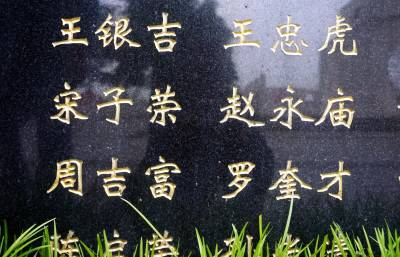 王银吉 王忠虎
宋子荣 赵永庙
周吉富 罗奎才